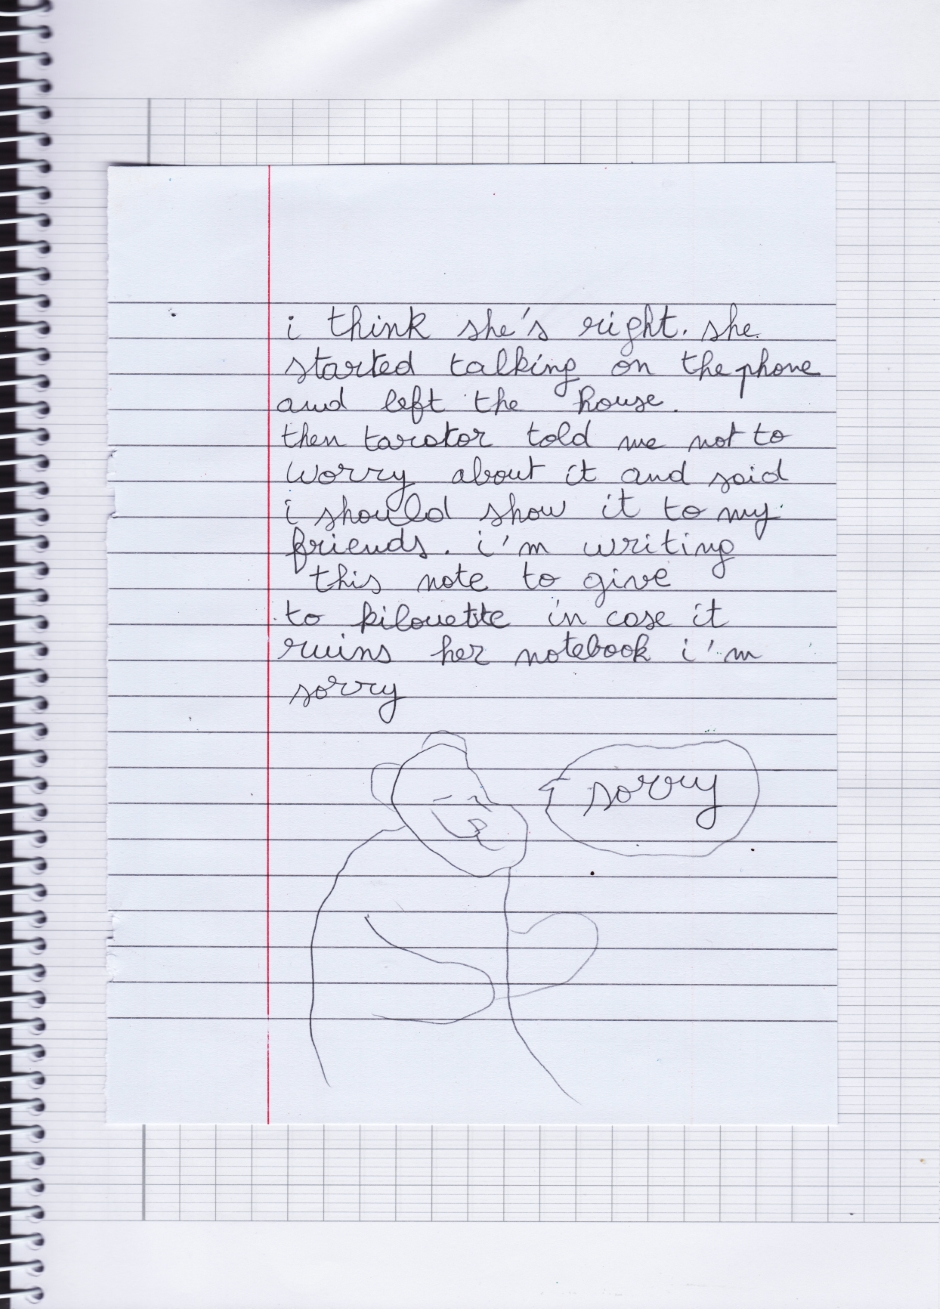 i think she's right. she
started talking on the phone
and left the house.
then tarator told me not to
worry about it and said
i should show it to my
friends. i'm writing
this note to give
to pilouette in case it
ruins her notebook i'm
sorry
sorry